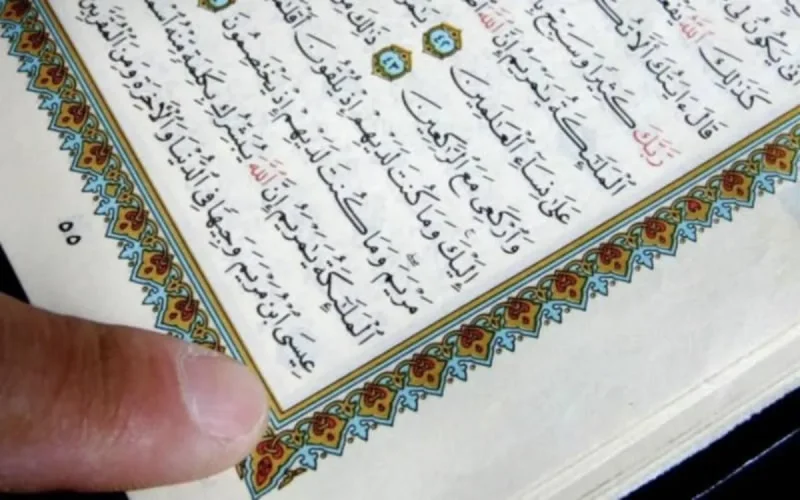 يَكُونُ لِى
كَذَٰلِكَ ٱللَّهُ
قَالَ ءَايَتُكَ أَلَّا
رَّبَّكَ كَثِيرًا وَسَبِّحْ
ٱلْمَلَٰٓئِكَةُ يَٰمَرْيَمُ إِنَّ ٱللَّهَ
عَلَىٰ نِسَآءِ ٱلْعَٰلَمِينَ ٤٢
وَٱرْكَعِى مَعَ ٱلرَّٰكِعِينَ ٤٣ ذَٰلِكَ
إِلَيْكَ وَمَا كُنتَ لَدَيْهِمْ إِذْ يُلْقُونَ
مَرْيَمَ وَمَا كُنتَ لَدَيْهِمْ إِذْ يَخْتَصِمُونَ
ٱلْمَلَٰٓئِكَةُ يَٰمَرْيَمُ إِنَّ ٱللَّهَ يُبَشِّرُكِ بِكَلِمَةٍ مِّنْهُ
عِيسَى ٱبْنُ مَرْيَمَ وَجِيهًا فِى ٱلدُّنْيَا وَٱلْءَاخِرَةِ وَمِنَ ٱلْمُقَرَّبِينَ
٥٥